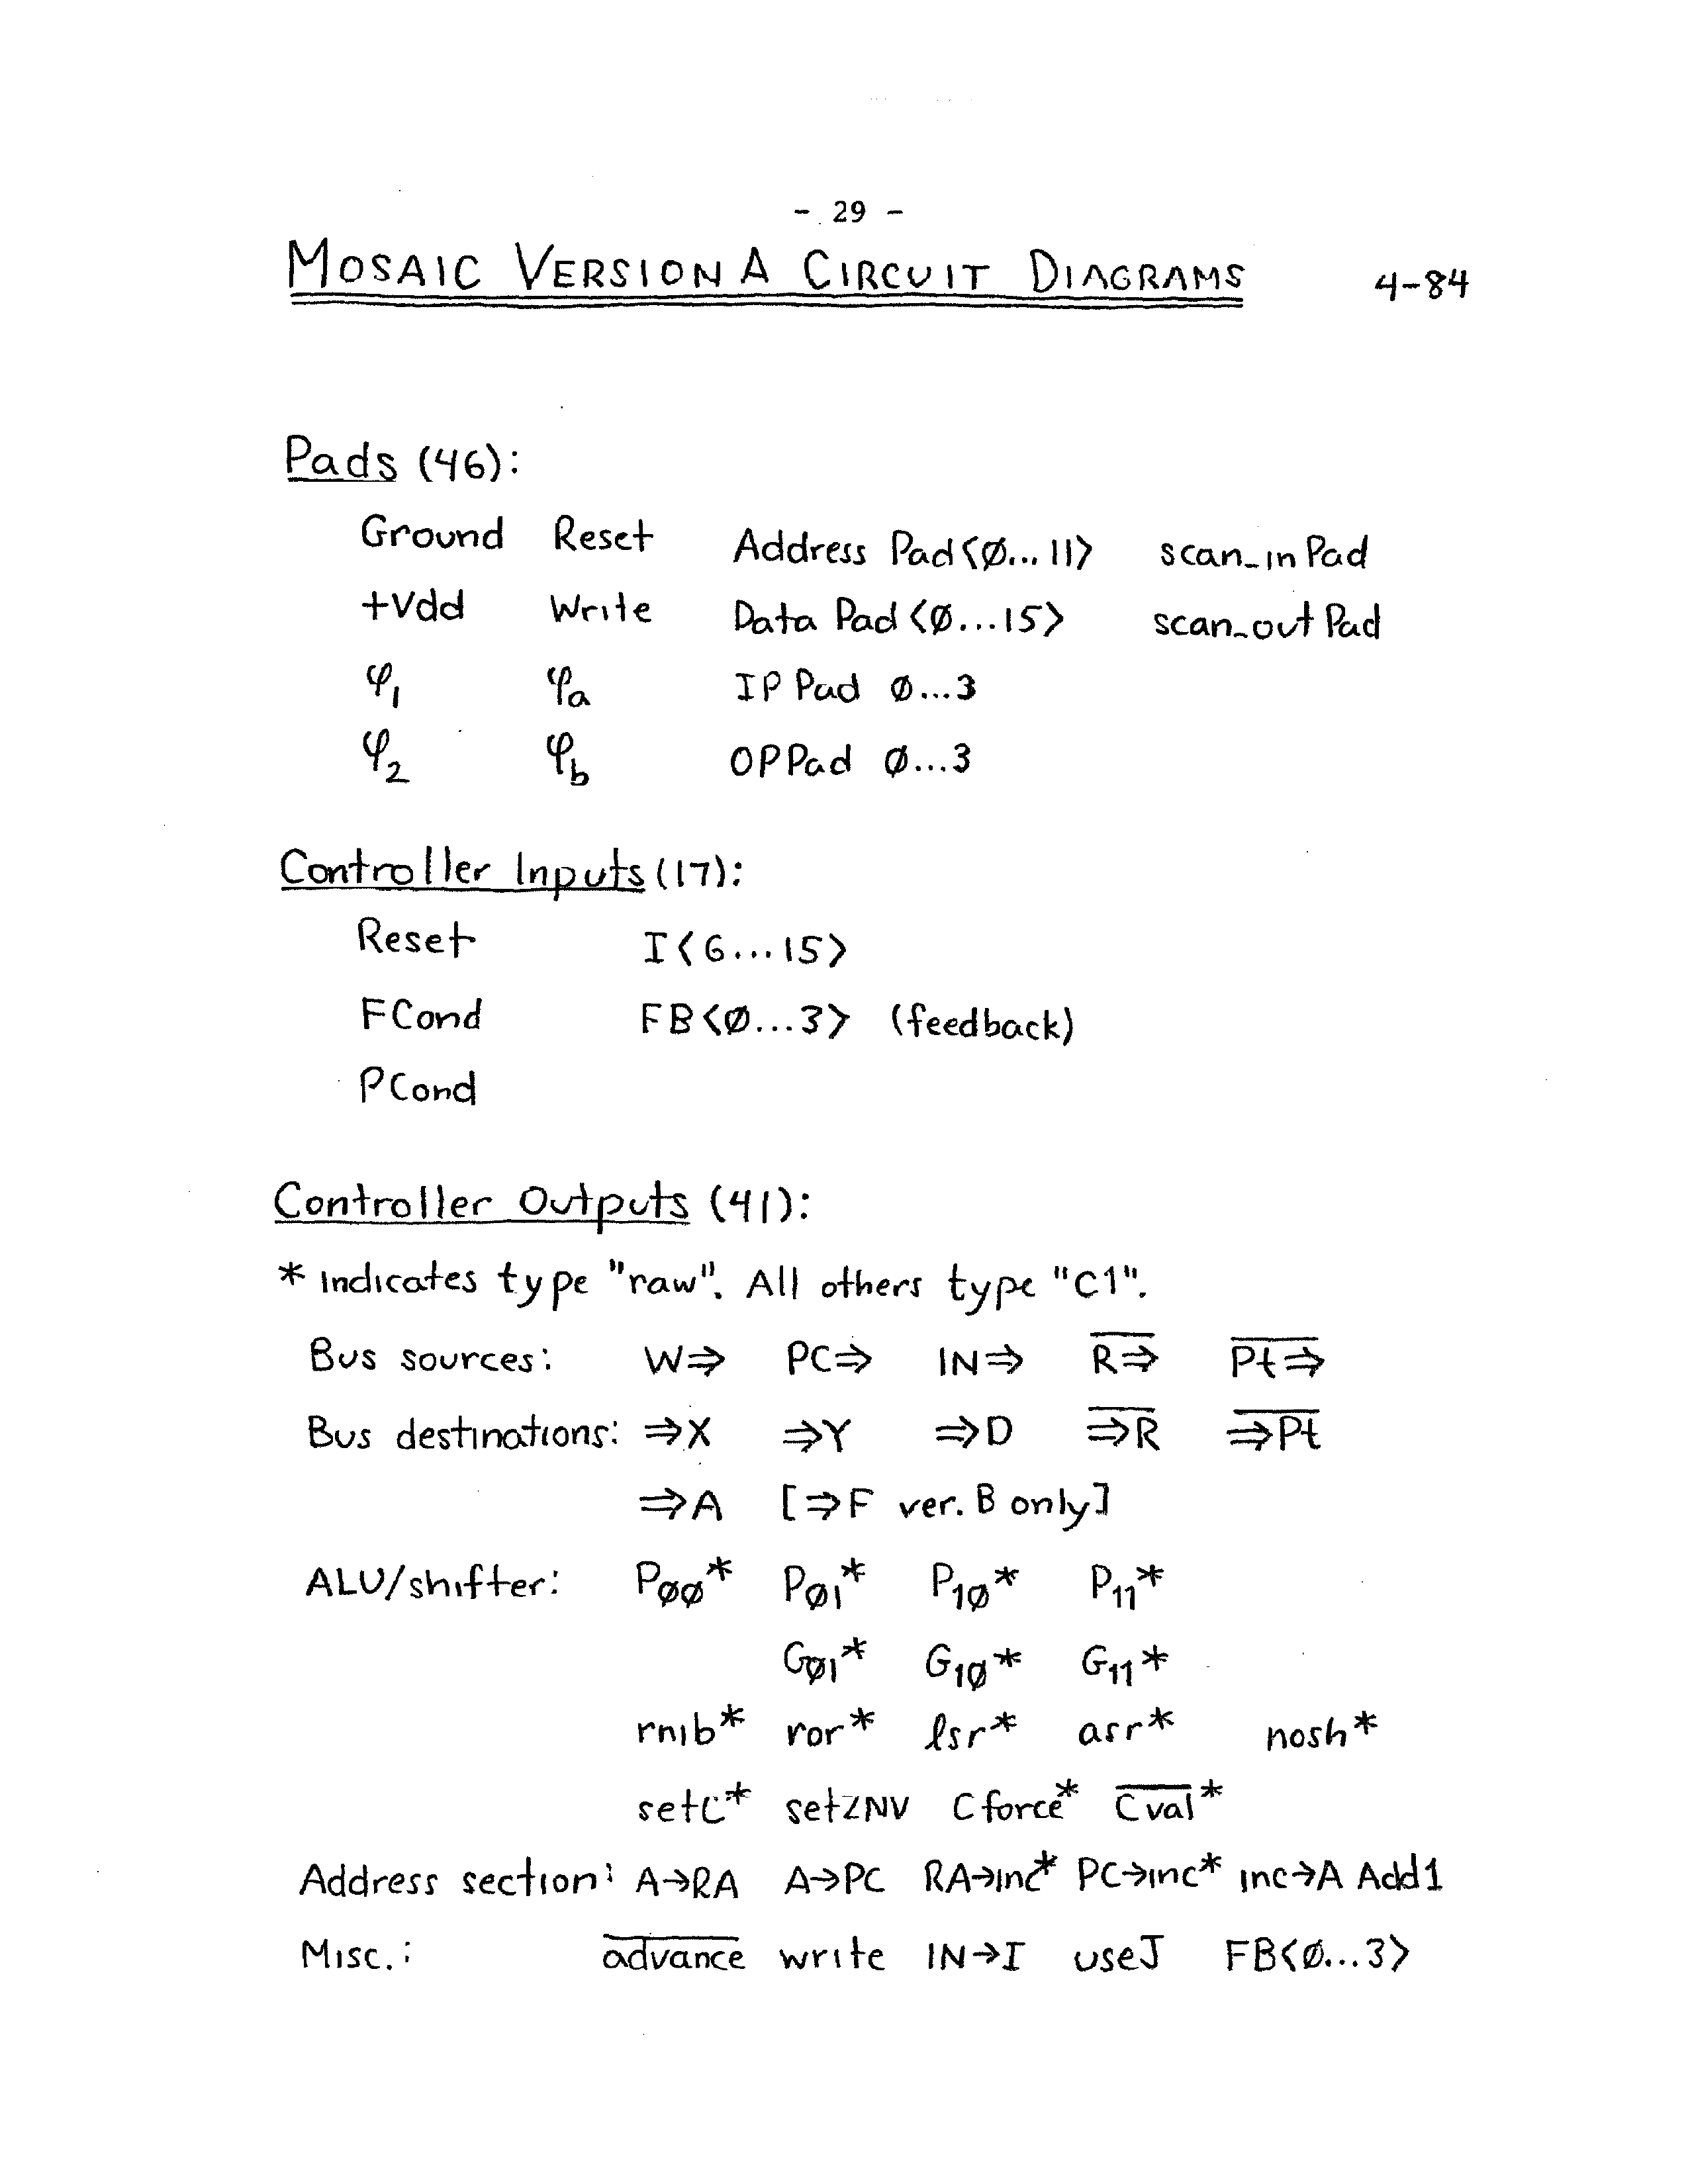 - 29 -
MOSAIC VERSION A CIRCUIT DIAGRAMS 4-84
Pads (46):
Ground Reset Address Pad<Ø...11> scan_in Pad
+Vdd Write Data Pad <Ø...15> scan_out Pad
φ₁ φa IP Pad Ø...3
φ₂ φb OP Pad Ø...3
Controller Inputs (17):
Reset I<6...15>
FCond FB<Ø...3> (feedback)
PCond
Controller Outputs (41):
* indicates type "raw". All others type "C1".
Bus sources: W⇒ PC⇒ IN⇒ R̅⇒̅ P̅t̅⇒̅
Bus destinations: ⇒X ⇒Y ⇒D ⇒̅R̅ ⇒̅P̅t̅
⇒A [⇒F ver. B only]
ALU/shifter: PØØ* PØ1* P1Ø* P11*
GØ1* G1Ø* G11*
rnib* ror* lsr* asr* nosh*
setC* setZNV Cforce* C̅v̅a̅l̅*
Address section: A→RA A→PC RA→inc* PC→inc* inc→A Add1
Misc.: a̅d̅v̅a̅n̅c̅e̅ write IN→I useJ FB<Ø...3>